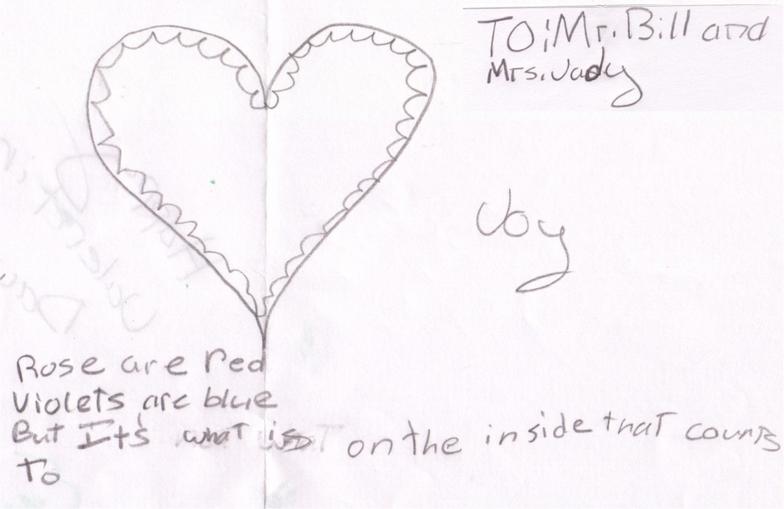 TO: Mr. Bill and
Mrs. Judy
Joy
Rose are Red
Violets are blue
But It's what is on the inside that counts
To